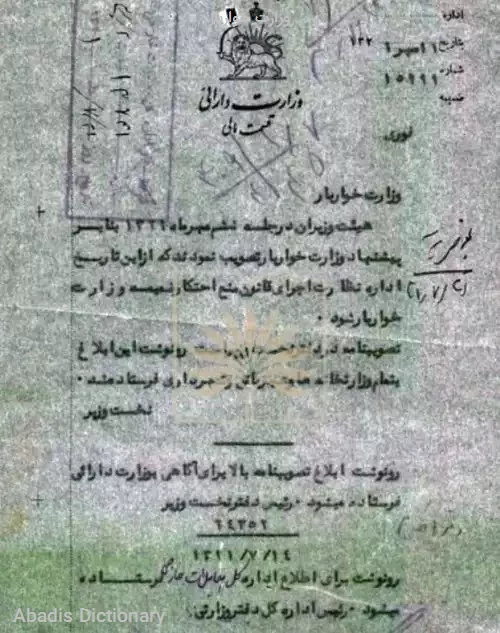 اداره
بتاریخ ۱۱ مهر ۱ ۱۳۲
شماره ۱۵۹۹۹
ضمیمه
وزارت دارائی
قسمت مالی
فوری
وزارت خواربار
هیئت وزیران در جلسه ششم مهرماه ۱۳۲۱ بنا بر
پیشنهاد وزارت خواربار تصویب نمودند که از این تاریخ
اداره نظارت اجرای قانون منع احتکار ضمیمه وزارت
خواربار شود .
تصویبنامه در دفتر نخست وزیر است رونوشت این ابلاغ
بتمام وزارتخانه ها و شهربانی و شهرداری فرستاده شد .
نخست وزیر
رونوشت ابلاغ تصویبنامه بالا برای آگاهی بوزارت دارائی
فرستاده میشود . رئیس دفتر نخست وزیر
۶۴۳۵۲
۱۳۲۱/۷/۱۴
رونوشت برای اطلاع اداره کل معاملات خارجی فرستاده
میشود . رئیس اداره کل دفتر وزارتی
Abadis Dictionary